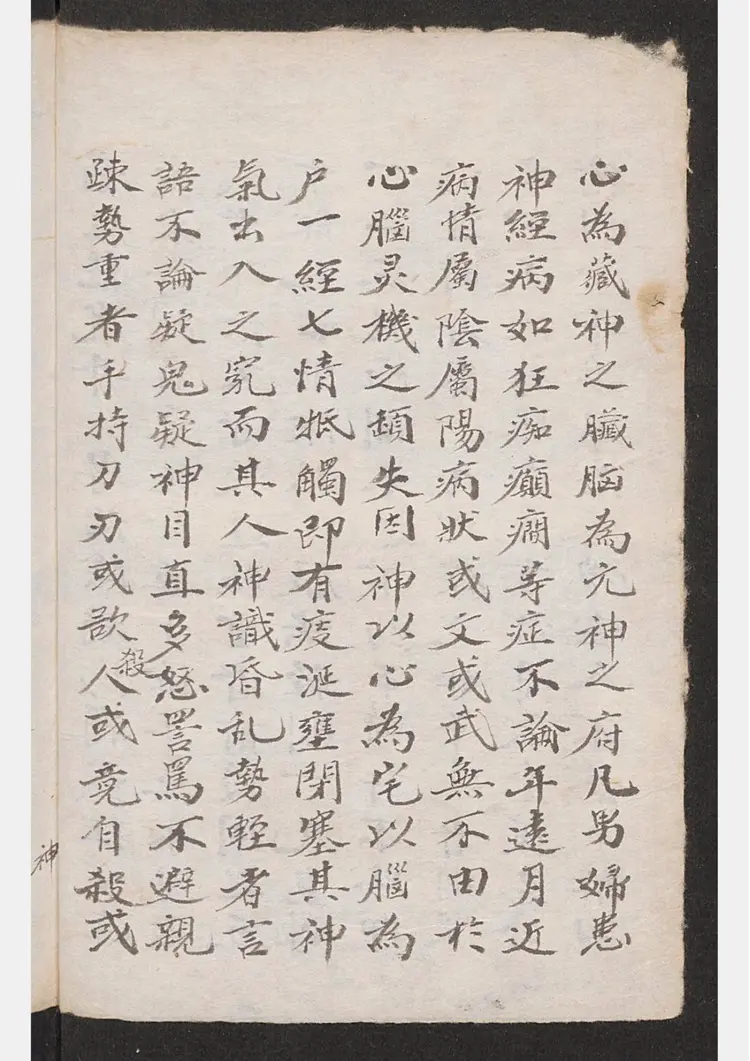 心為藏神之臟脳為元神之府凡男婦患
神經病如狂痴癲癇等症不論年遠月近
病情屬陰屬陽病狀或文或武無不由於
心腦灵機之頓失因神以心為宅以腦為
户一經七情抵觸即有痰涎壅閉塞其神
氣出入之竅而其人神識昏乱勢輕者言
語不論疑鬼疑神目直多怒詈罵不避親
疎勢重者手持刀刃或欲殺人或竟自殺或
神